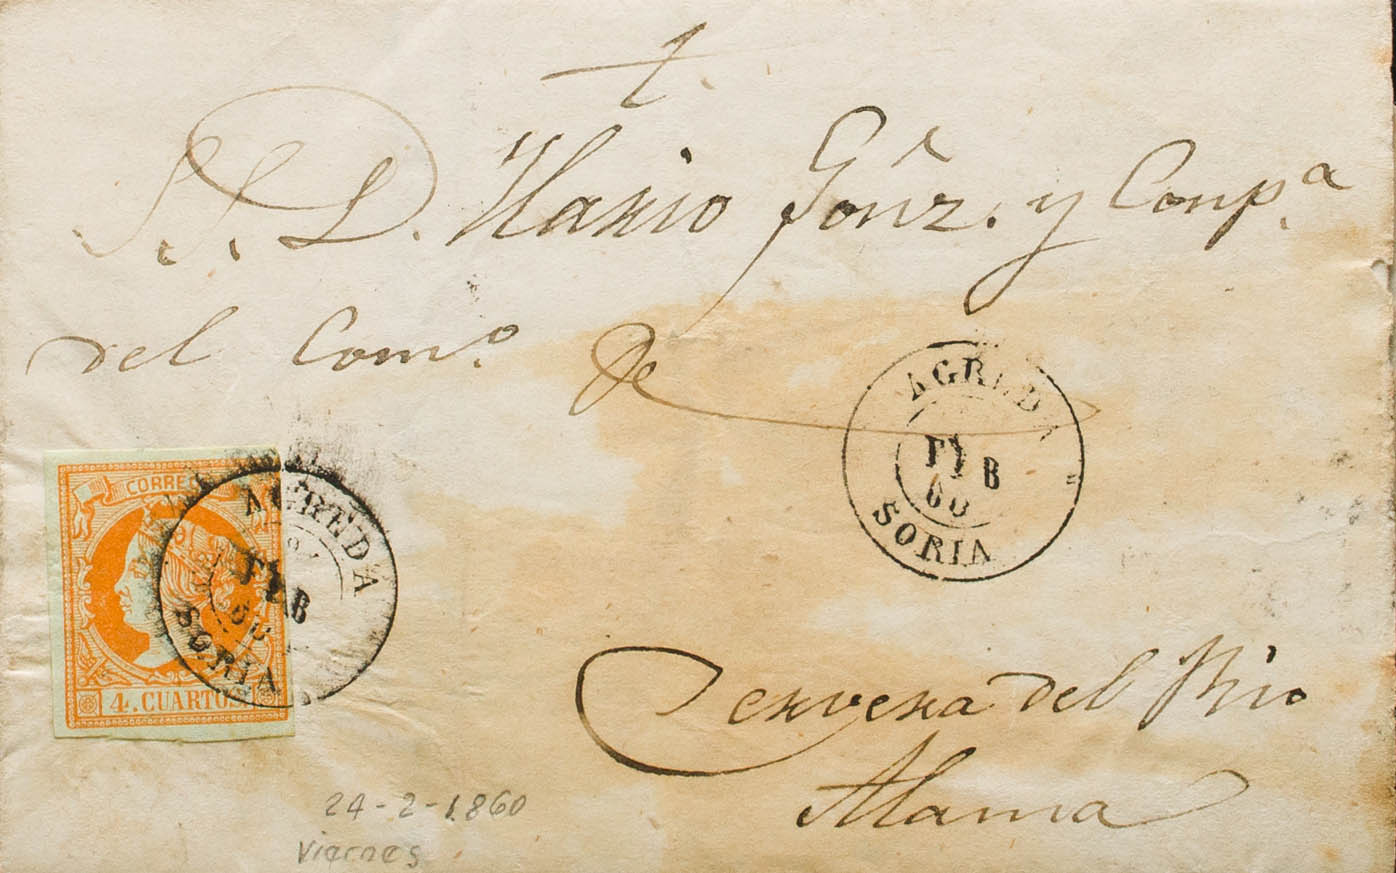 t.
S.S. D. Ilario Gonz. y Comp.ª
del Com.º de
AGREDA
FEB
60
SORIA
CORREOS
AGREDA
FEB
60
SORIA
4. CUARTOS
Cervera del Rio
Alama
24-2-1.860
Viernes